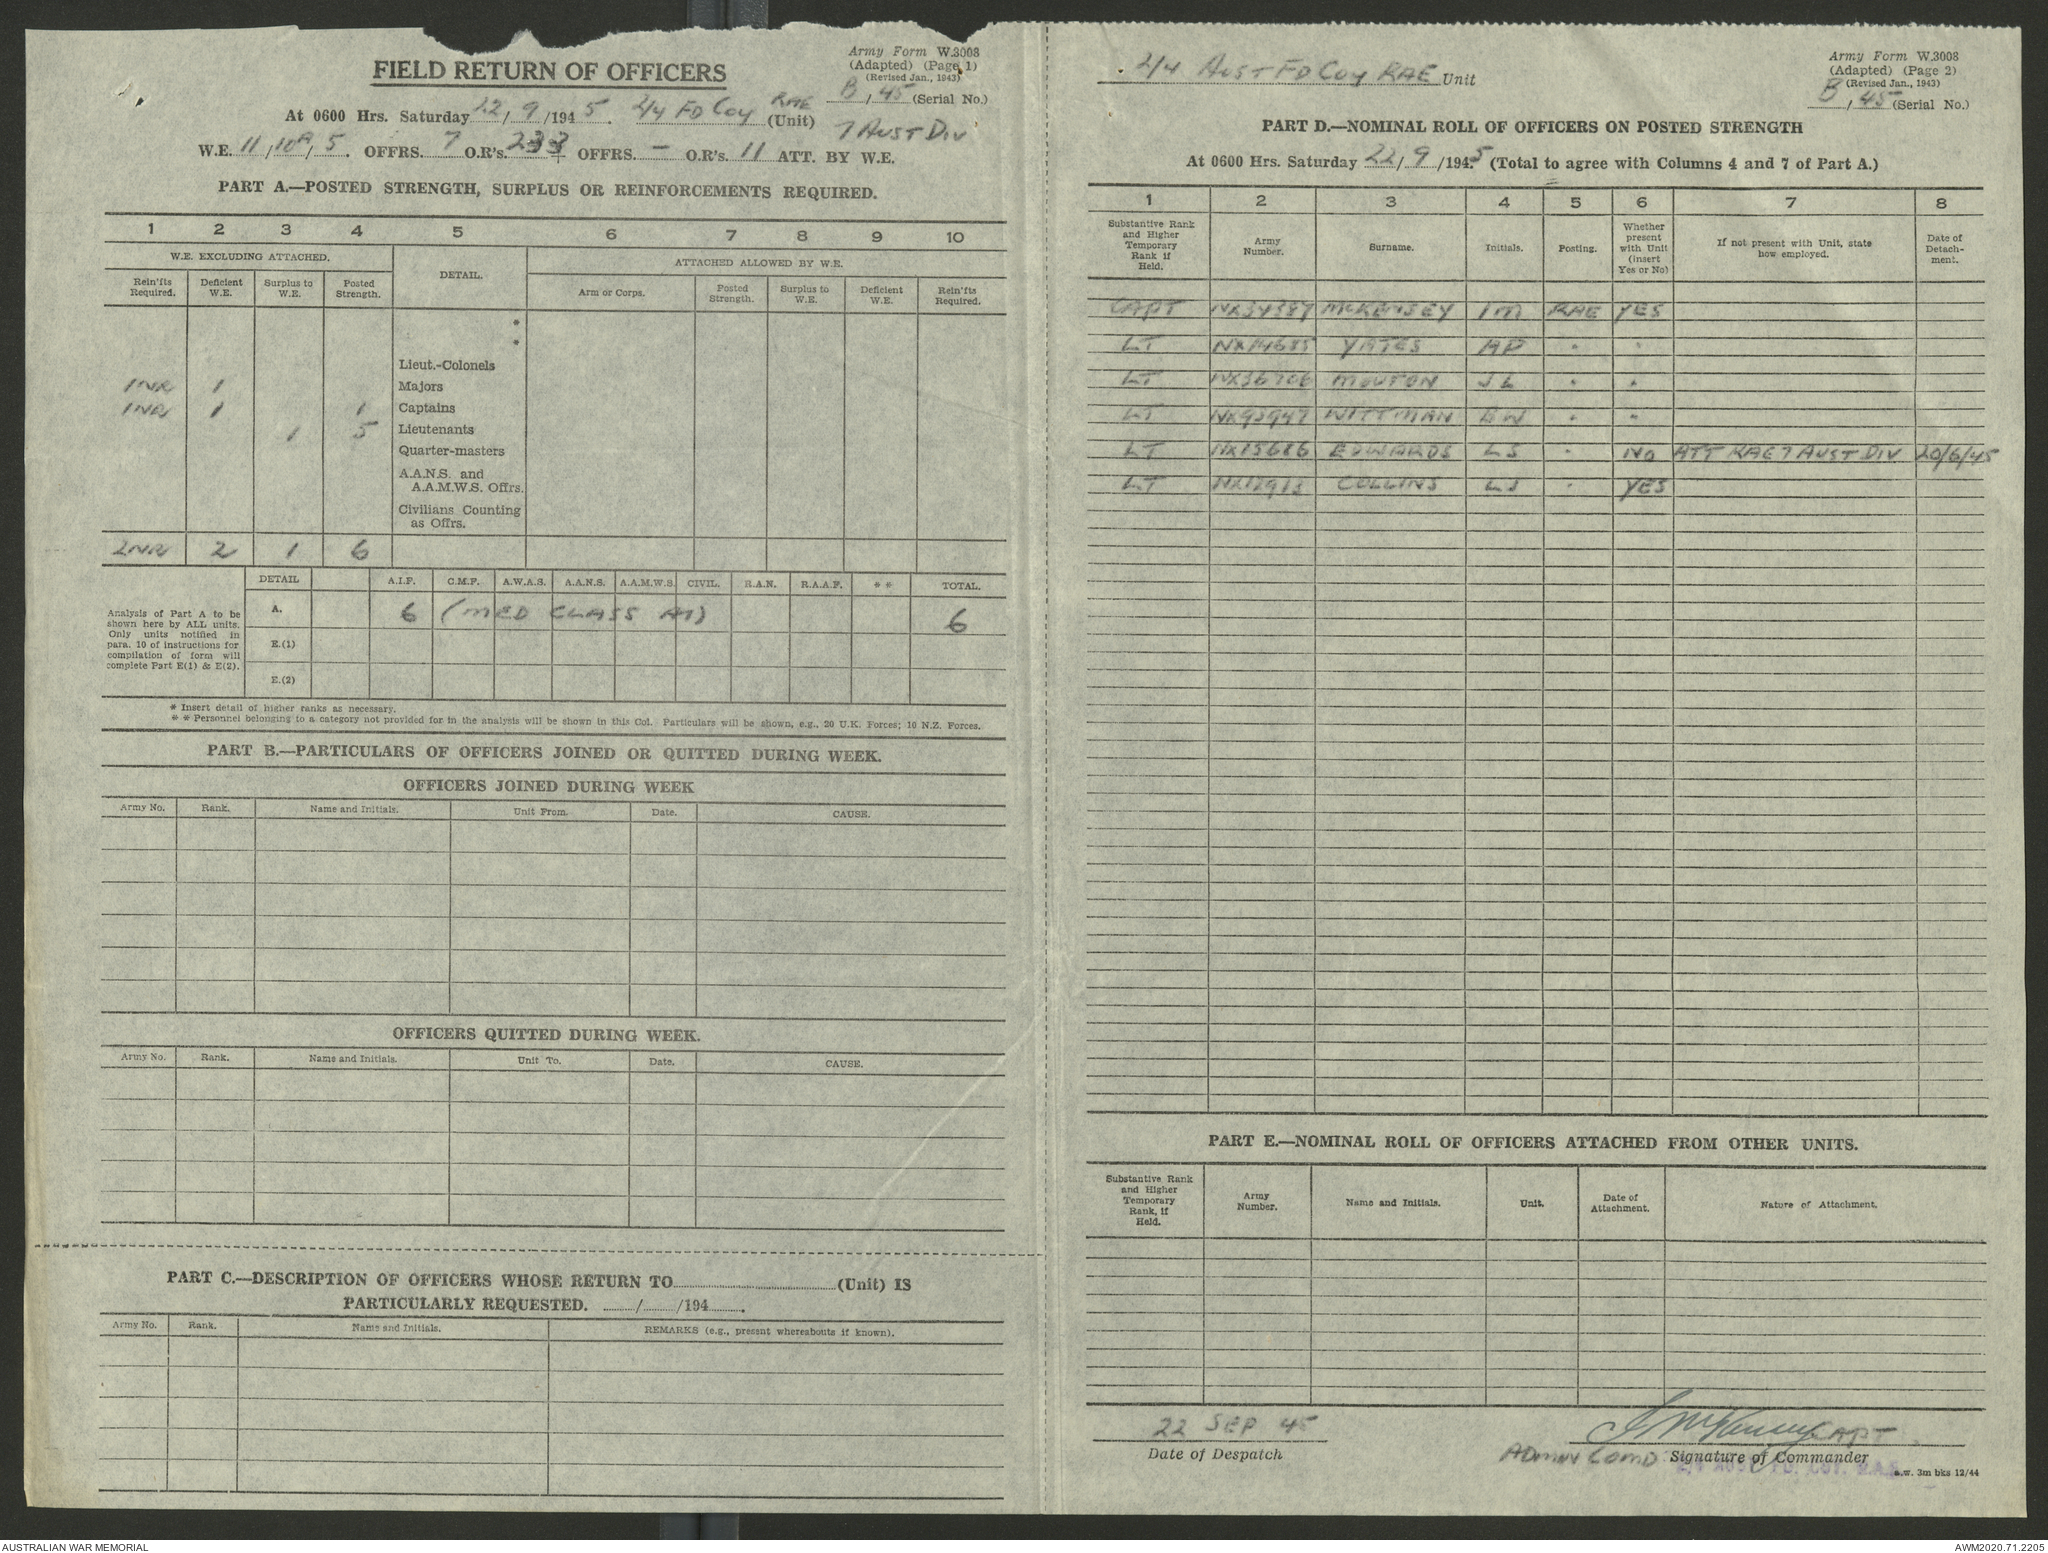 Army Form W.3008
(Adapted) (Page 1)
(Revised Jan., 1943)
FIELD RETURN OF OFFICERS
B / 45 (Serial No.)
At 0600 Hrs. Saturday 22 / 9 / 1945. 2/4 FD COY RAE (Unit)
7 AUST DIV
W.E. 11 / 10A / 5. OFFRS. 7 O.R's. 233 OFFRS. - O.R's. 11 ATT. BY W.E.
PART A.—POSTED STRENGTH, SURPLUS OR REINFORCEMENTS REQUIRED.
1 2 3 4 5 6 7 8 9 10
W.E. EXCLUDING ATTACHED.
DETAIL.
ATTACHED ALLOWED BY W.E.
Rein'fts Required. Deficient W.E. Surplus to W.E. Posted Strength. Arm or Corps. Posted Strength. Surplus to W.E. Deficient W.E. Rein'fts Required.
*
*
Lieut.-Colonels
1NR 1 Majors
1NR 1 1 Captains
1 5 Lieutenants
Quarter-masters
A.A.N.S. and
A.A.M.W.S. Offrs.
Civilians Counting
as Offrs.
2NR 2 1 6
DETAIL A.I.F. C.M.F. A.W.A.S. A.A.N.S. A.A.M.W.S. CIVIL. R.A.N. R.A.A.F. * * TOTAL.
Analysis of Part A to be
shown here by ALL units.
Only units notified in
para. 10 of instructions for
compilation of form will
complete Part E(1) & E(2).
A. 6 (MED CLASS A1) 6
E.(1)
E.(2)
* Insert detail of higher ranks as necessary.
* * Personnel belonging to a category not provided for in the analysis will be shown in this Col. Particulars will be shown, e.g., 20 U.K. Forces; 10 N.Z. Forces.
PART B.—PARTICULARS OF OFFICERS JOINED OR QUITTED DURING WEEK.
OFFICERS JOINED DURING WEEK
Army No. Rank. Name and Initials. Unit From. Date. CAUSE.
OFFICERS QUITTED DURING WEEK.
Army No. Rank. Name and Initials. Unit To. Date. CAUSE.
PART C.—DESCRIPTION OF OFFICERS WHOSE RETURN TO (Unit) IS
PARTICULARLY REQUESTED. / /194 .
Army No. Rank. Name and Initials. REMARKS (e.g., present whereabouts if known).
2/4 AUST FD COY RAE Unit
Army Form W.3008
(Adapted) (Page 2)
(Revised Jan., 1943)
B / 45 (Serial No.)
PART D.—NOMINAL ROLL OF OFFICERS ON POSTED STRENGTH
At 0600 Hrs. Saturday 22 / 9 / 1945 (Total to agree with Columns 4 and 7 of Part A.)
1 2 3 4 5 6 7 8
Substantive Rank and Higher Temporary Rank if Held. Army Number. Surname. Initials. Posting. Whether present with Unit (insert Yes or No) If not present with Unit, state how employed. Date of Detach-ment.
CAPT NX34387 McKENSEY IM RAE YES
LT NX14685 YATES AP " "
LT NX36706 MOUTON JL " "
LT NX93947 WITTMAN BW " "
LT NX15686 EDWARDS LS " NO ATT RAE 7 AUST DIV 20/6/45
LT COLLINS LJ " YES
PART E.—NOMINAL ROLL OF OFFICERS ATTACHED FROM OTHER UNITS.
Substantive Rank and Higher Temporary Rank, if Held. Army Number. Name and Initials. Unit. Date of Attachment. Nature of Attachment.
22 SEP 45
Date of Despatch
CAPT
ADMIN COMD Signature of Commander
a.w. 3m bks 12/44
AUSTRALIAN WAR MEMORIAL
AWM2020.71.2205